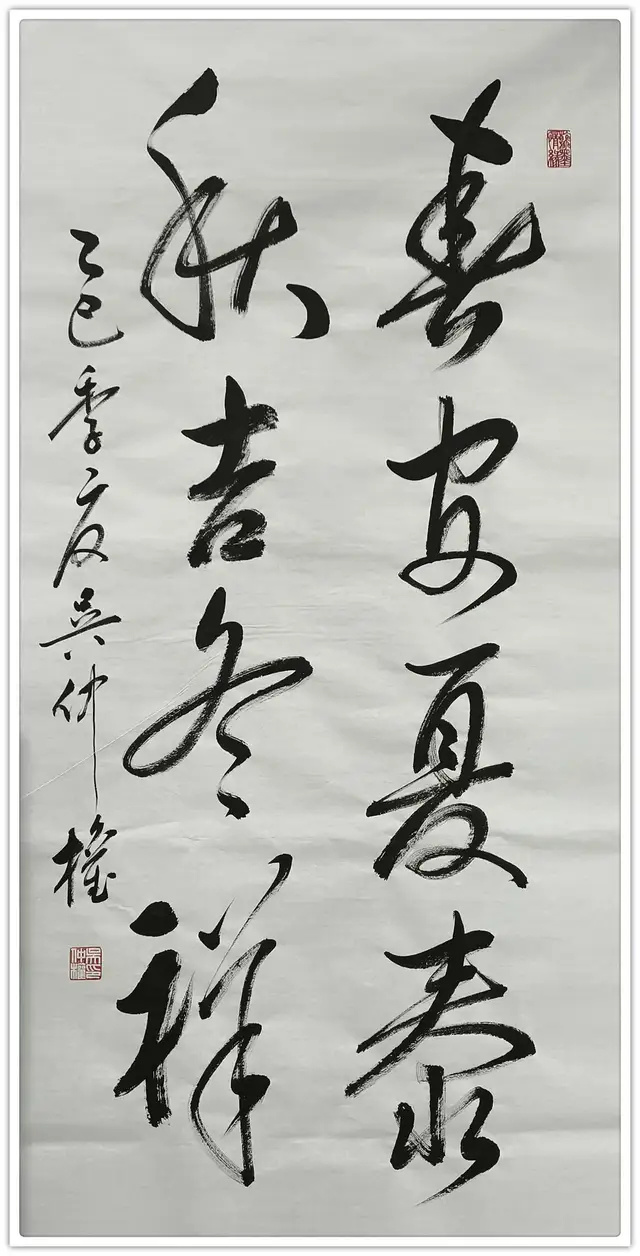 春安夏泰
秋吉冬祥
乙巳季夏吴仲権